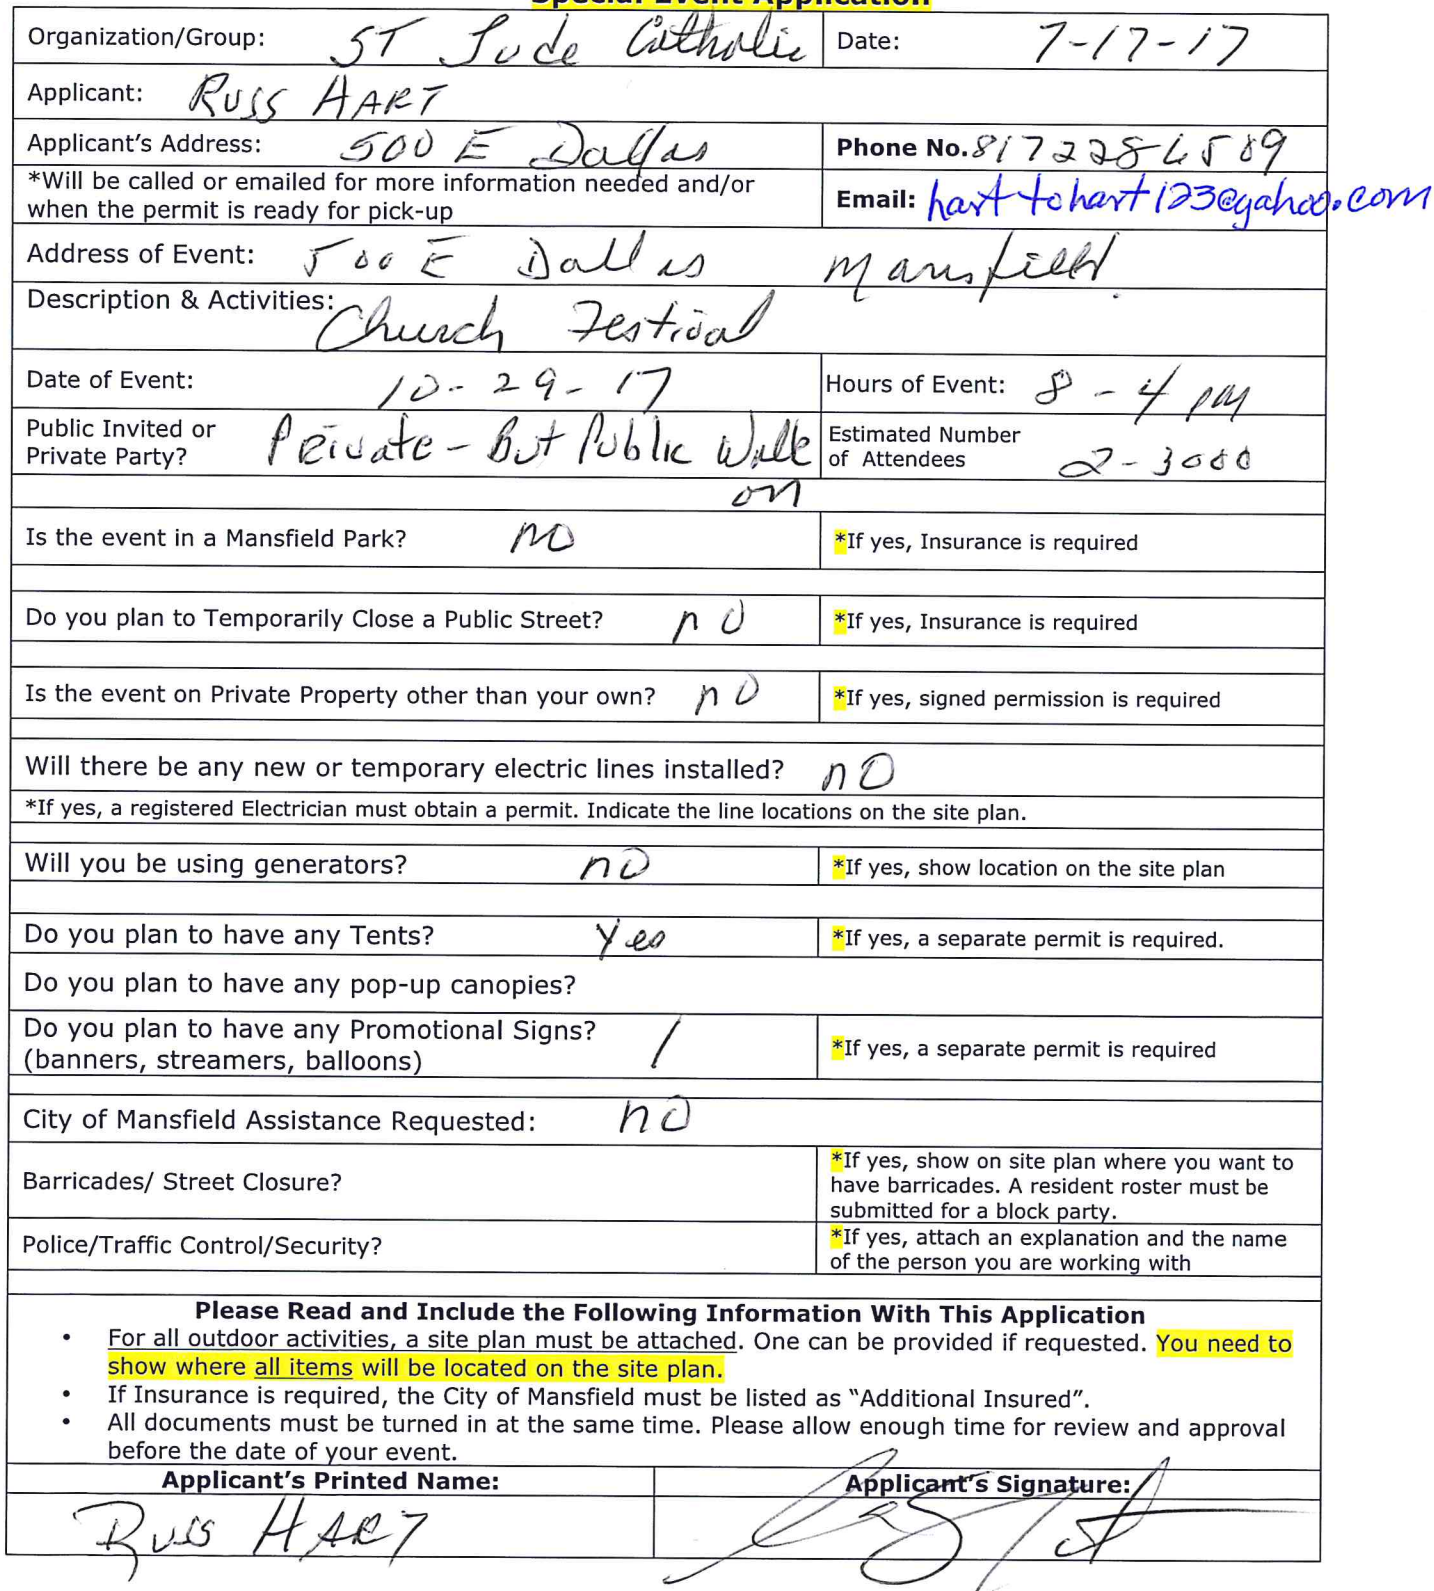 Special Event Application
Organization/Group: ST Jude Catholic Date: 7-17-17
Applicant: Russ HART
Applicant's Address: 500 E Dallas Phone No. 817 228 6589
*Will be called or emailed for more information needed and/or
when the permit is ready for pick-up
Email: harttohart123@yahoo.com
Address of Event: 500 E Dallas Mansfield
Description & Activities: Church Festival
Date of Event: 10-29-17 Hours of Event: 8 - 4 pm
Public Invited or
Private Party? Private - But Public Walk
on
Estimated Number
of Attendees 2-3000
Is the event in a Mansfield Park? NO *If yes, Insurance is required
Do you plan to Temporarily Close a Public Street? no *If yes, Insurance is required
Is the event on Private Property other than your own? no *If yes, signed permission is required
Will there be any new or temporary electric lines installed? no
*If yes, a registered Electrician must obtain a permit. Indicate the line locations on the site plan.
Will you be using generators? no *If yes, show location on the site plan
Do you plan to have any Tents? Yes *If yes, a separate permit is required.
Do you plan to have any pop-up canopies?
Do you plan to have any Promotional Signs? /
(banners, streamers, balloons)
*If yes, a separate permit is required
City of Mansfield Assistance Requested: no
Barricades/ Street Closure?
*If yes, show on site plan where you want to
have barricades. A resident roster must be
submitted for a block party.
Police/Traffic Control/Security?
*If yes, attach an explanation and the name
of the person you are working with
Please Read and Include the Following Information With This Application
• For all outdoor activities, a site plan must be attached. One can be provided if requested. You need to
show where all items will be located on the site plan.
• If Insurance is required, the City of Mansfield must be listed as “Additional Insured”.
• All documents must be turned in at the same time. Please allow enough time for review and approval
before the date of your event.
Applicant's Printed Name: Applicant's Signature:
Russ HART